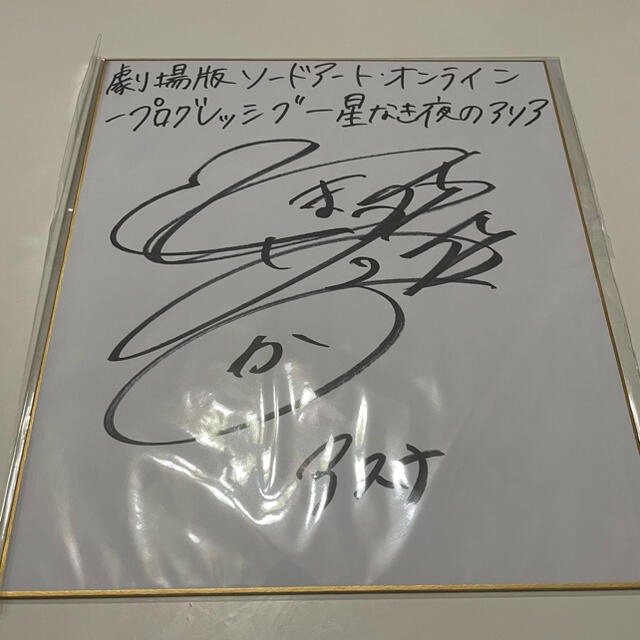 劇場版ソードアート・オンライン
-プログレッシブ-星なき夜のアリア
アスナ